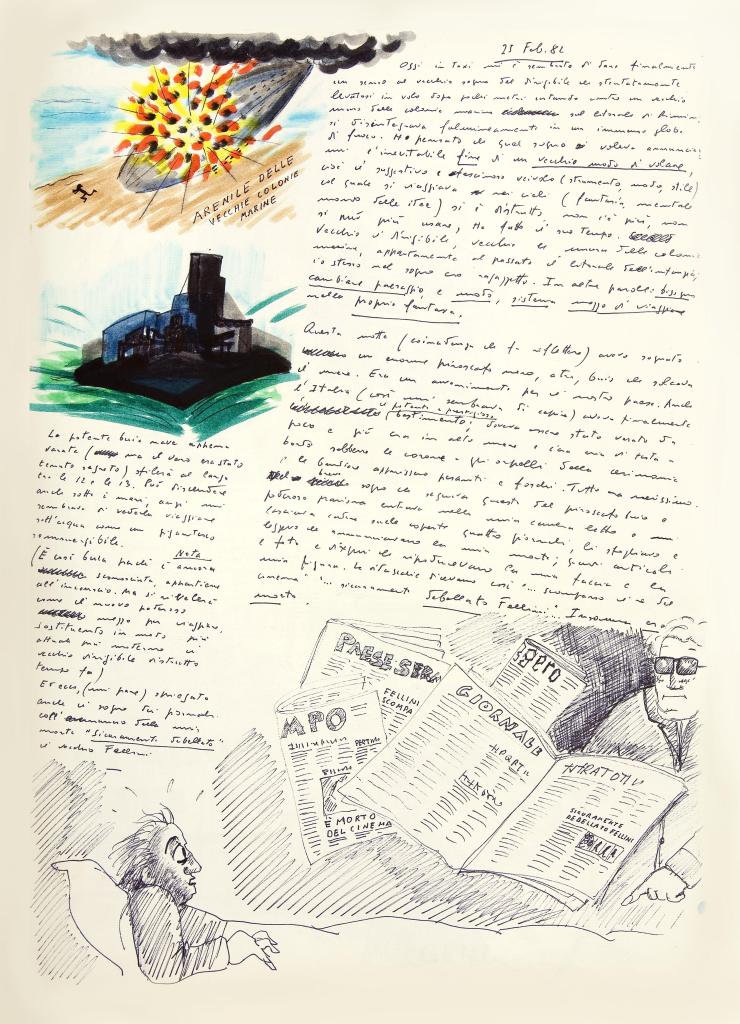 25 Feb. 82
Oggi in taxi mi è sembrato di dare finalmente
un senso al vecchio sogno del dirigibile che stentatamente
levatosi in volo dopo pochi metri urtando contro un vecchio
muro delle colonie marine sul litorale di Rimini
si disintegrava fulmineamente in un immenso globo
di fuoco. Ho pensato che quel sogno voleva annunciar
mi l'inevitabile fine di un vecchio modo di volare,
così suggestivo e fascinoso veicolo (strumento, modo, stile)
col quale si viaggiava nei cieli (fantasia, mentale
mondo delle idee) si è distrutto, non c'è più, non
si può più usare, ha fatto il suo tempo.
Vecchio il dirigibile, vecchio il muro delle colonie
marine, appartenente al passato il litorale dell'infanzia,
io stesso nel sogno ero ragazzetto. In altre parole: bisogna
cambiare paesaggio e modo, sistema mezzo di viaggiare
nella propria fantasia.
ARENILE DELLE
VECCHIE COLONIE
MARINE
Questa notte (coincidenza che fa riflettere) avevo sognato
un enorme piroscafo nero, buio che solcava
il mare. Era un avvenimento per il nostro paese. Anche
l'Italia (così mi sembrava di capire) aveva finalmente
il potente e prestigioso
bastimento; doveva essere stato varato da
poco e già era in alto mare e c'era aria di festa a
bordo sebbene le corone e gli orpelli della cerimonia
e le bandiere apparissero pesanti e foschi. Tutto era nerissimo.
sogno che seguiva questo del piroscafo buio e
poderoso qualcuno entrava nella mia camera da letto e mi
lasciava cadere sulle coperte quattro giornali, li sfogliavo e
leggevo che annunciavano la mia morte; grandi articoli
e foto e disegni che riproducevano la mia faccia e la
mia figura. Le didascalie dicevano così "... scompare il re del
cinema" "... sicuramente debellato Fellini". Insomma ero
morto.
La potente buia nave appena
varata (ma il varo era stato
tenuto segreto) sfilerà al largo
tra le 12 e le 13. Può discendere
anche sotto i mari, anzi mi
sembrava di vederla viaggiare
sott'acqua come un gigantesco
sommergibile.
Nota
(È così buia perché è ancora
sconosciuta, appartiene
all'inconscio. Ma si rivelerà
come il nuovo poderoso
mezzo per viaggiare,
sostituendo in modo più
attuale più moderno il
vecchio dirigibile distrutto
tempo fa)
Ed ecco, (mi pare) spiegato
anche il sogno dei giornali
coll'annuncio della mia
morte "Sicuramente debellato"
il vecchio Fellini.
PAESE SERA
FELLINI
SCOMPA
MPO
È MORTO
DEL CINEMA
GIORNALE
GGERO
SICURAMENTE
DEBELLATO FELLINI